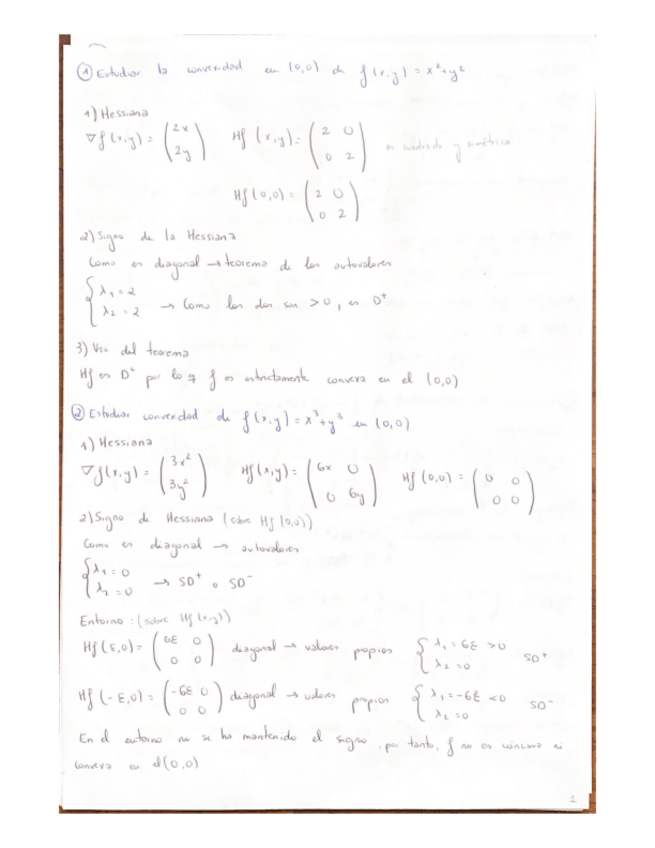 ① Estudiar la convexidad en (0,0) de f(x,y) = x²+y²
1) Hessiana
∇f(x,y) = (2x 2y) Hf(x,y) = (2 0 0 2) es cuadrada y simétrica
Hf(0,0) = (2 0 0 2)
2) Signo de la Hessiana
Como es diagonal → teorema de los autovalores
{λ₁ = 2 λ₂ = 2 → Como los dos son >0, es D⁺
3) Uso del teorema
Hf es D⁺ por lo q f es estrictamente convexa en el (0,0)
② Estudiar convexidad de f(x,y) = x³+y³ en (0,0)
1) Hessiana
∇f(x,y) = (3x² 3y²) Hf(x,y) = (6x 0 0 6y) Hf(0,0) = (0 0 0 0)
2) Signo de Hessiana (sobre Hf(0,0))
Como es diagonal → autovalores
{λ₁ = 0 λ₂ = 0 → SD⁺ o SD⁻
Entorno: (sobre Hf(x,y))
Hf(ε,0) = (6ε 0 0 0) diagonal → valores propios {λ₁ = 6ε >0 λ₂ = 0 SD⁺
Hf(-ε,0) = (-6ε 0 0 0) diagonal → valores propios {λ₁ = -6ε <0 λ₂ = 0 SD⁻
En el entorno no se ha mantenido el signo, por tanto, f no es cóncava ni
convexa en el (0,0)
1